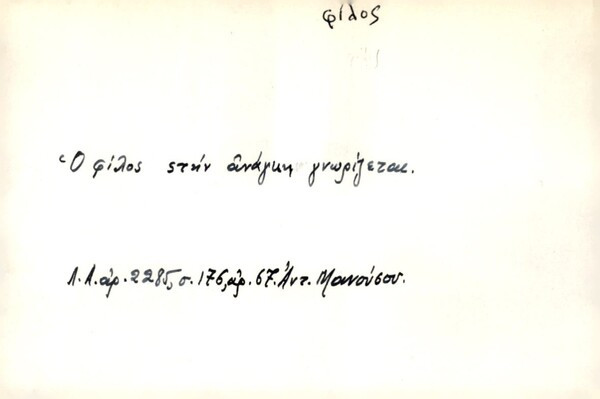 φίλος
Ὁ φίλος στήν ἀνάγκη γνωρίζεται.
Λ.Α.ἀρ.2285,σ.176,ἀρ.67.Ἀντ.Μανούσου.